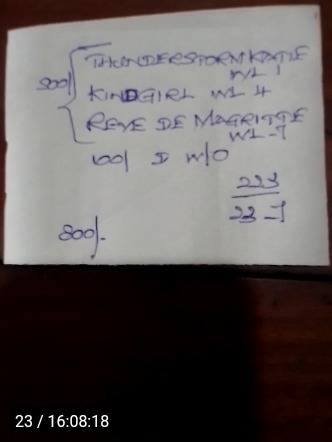 THUNDERSTORM KATIE
WL 1
500/
KINDGIRL WL 4
REVE DE MAGRITTE
WL-7
100/ D W/O
223
23-7
800/-
23 / 16:08:18